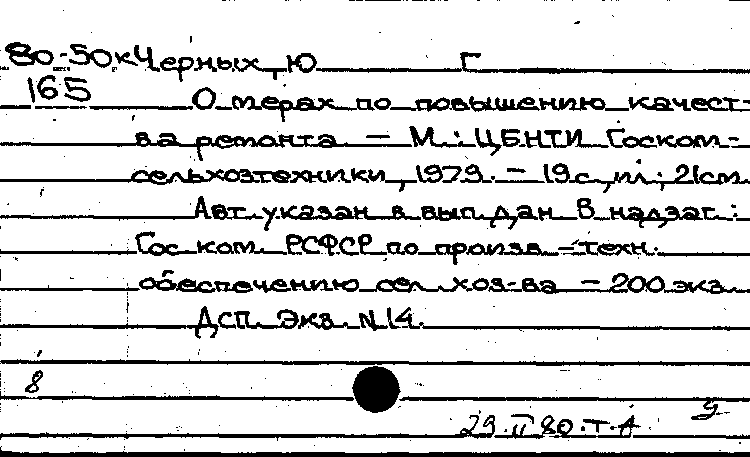 80-50к Черных, Ю Г
165
О мерах по повышению качест-
ва ремонта. — М.: ЦБНТИ Госком-
сельхозтехники, 1979. — 19 с., ил.; 21 см.
Авт. указан в вып. дан. В надзаг.:
Гос ком. РСФСР по произв.-техн.
обеспечению сел. хоз-ва — 200 экз.
Дсп. Экз. N 14.
8
9
29.II 80.Т-А